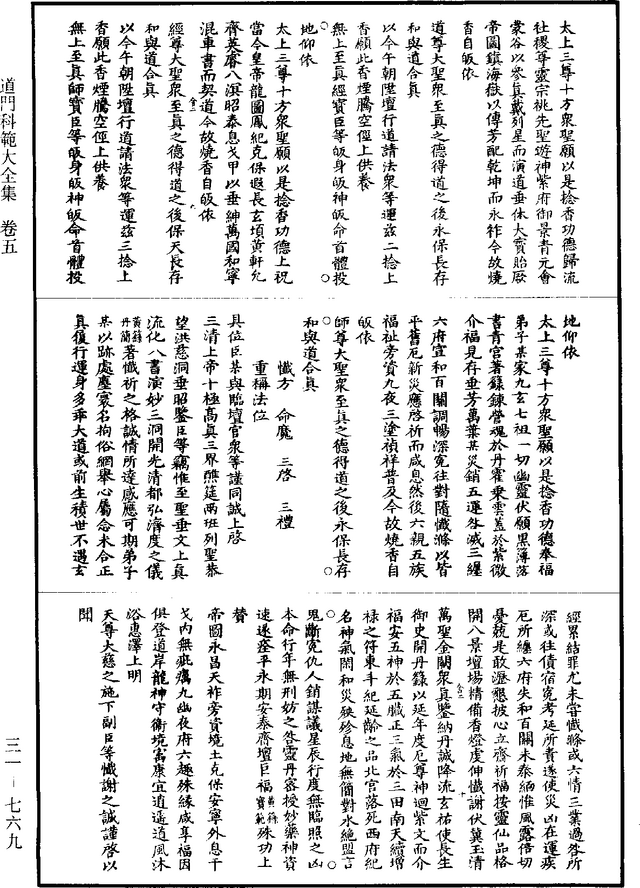 道門科範大全集　卷五
三一－七六九
太上三尊十方衆聖願以是捻香功德歸流
社稷尊靈宗祧先聖遊神紫府御景青元會
裳谷以參真戴列星而演道垂休大寶貽厥
帝圖鎮海嶽以傳芳配乾坤而永祚今故燒
香自皈依
道尊大聖衆至真之德得道之後永保長存
和與道合真
以今午朝陞壇行道請法衆等運茲二捻上
香願此香煙騰空徑上供養
無上至真經寶臣等皈身皈神皈命首體投
地仰依
太上三尊十方衆聖願以是捻香功德上祝
當今皇帝龍圖鳳紀克保遐長玄頊黃軒允
齊英睿八溟昭泰息戈甲以垂紳萬國和寧
混車書而契道今故燒香自皈依
經尊大聖衆至真之德得道之後保天長存
和與道合真
以今午朝陞壇行道請法衆等運茲三捻上
香願此香煙騰空徑上供養
無上至真師寶臣等皈身皈神皈命首體投
地仰依
太上三尊十方衆聖願以是捻香功德奉福
弟子某家九玄七祖一切幽靈伏願黑簿落
書青宮著籙鍊營魂於丹霍乘雲蓋於紫微
介福見存垂芳萬葉某災銷五運咎滅三纏
六府宣和百關調暢深冤往對隨懺滌以皆
平舊厄新災應啓祈而咸息然後六親五族
福祉旁資九夜三塗禎祥普及今故燒香自
皈依
師尊大聖衆至真之德得道之後永保長存
和與道合真
懺方　命魔　三啓　三禮
重稱法位
具位臣某與臨壇官衆等謹同誠上啓
三清上帝十極高真三界熊筵兩班列聖恭
望洪慈洞垂昭鑒臣等竊惟至聖垂文上真
流化八書演妙三洞開光清都弘濟度之儀
黃籙丹簡著懺祈之格誠情所達感應可期弟子
某以跡處塵寰名拘俗網舉心屬念未合正
真復行運身多乖大道或前生積世不遇玄
經累結罪尤未嘗懺滌或六情三業過咎所
深或往債宿冤考延所責遂使災凶在運疾
厄所纏六府失和百關未泰緬惟風露倍切
憂兢是敢瀝懇披心立齋祈福按靈仙品格
開八景壇場精備香燈虔伸懺謝伏冀玉清
萬聖金闕衆真鑒納丹誠降流玄祐使長生
御史開丹籙以延年度厄尊神迴紫文而介
福安五神於五臟正三氣於三田南天續增
祿之符東斗紀延齡之品北宮落死西府紀
名神氣閑和災殃殄息地無簡對水絕盟言
鬼斷冤仇人銷謀議星辰行度無臨照之凶
本命行年無刑妨之咎靈丹密授妙藥神資
速遂痊平永期安泰齊壇巨福黃籙寶範殊功上
贊
帝圖永昌天祚旁資境土克保安寧外息干
戈內無疵癘九幽夜府六趣殊緣咸享福因
俱登道岸龍神守衛境富康宜逍遙道風沐
浴惠澤上明
天尊大慈之施下副臣等懺謝之誠謹啓以
聞